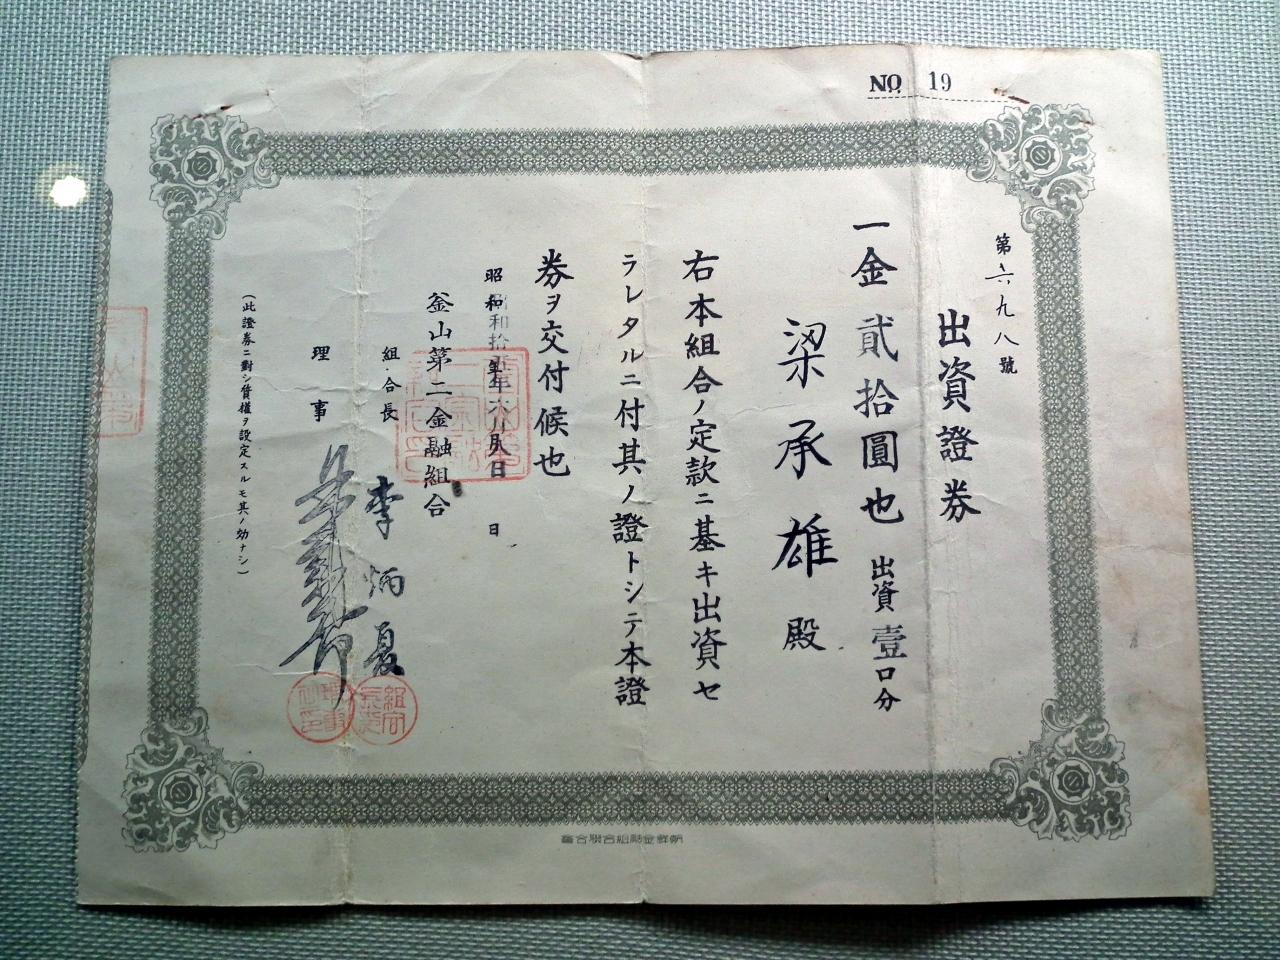 NO. 19
第六九八號
出資證券
一金貳拾圓也 出資壹口分
梁承雄殿
右本組合ノ定款ニ基キ出資セ
ラレタルニ付其ノ證トシテ本證
券ヲ交付候也
昭和拾五年六月八日
釜山第二金融組合
組合長 李炳夏
理事
(此證券ニ對シ質權ヲ設定スルモ其ノ効ナシ)
朝鮮金融組合聯合會